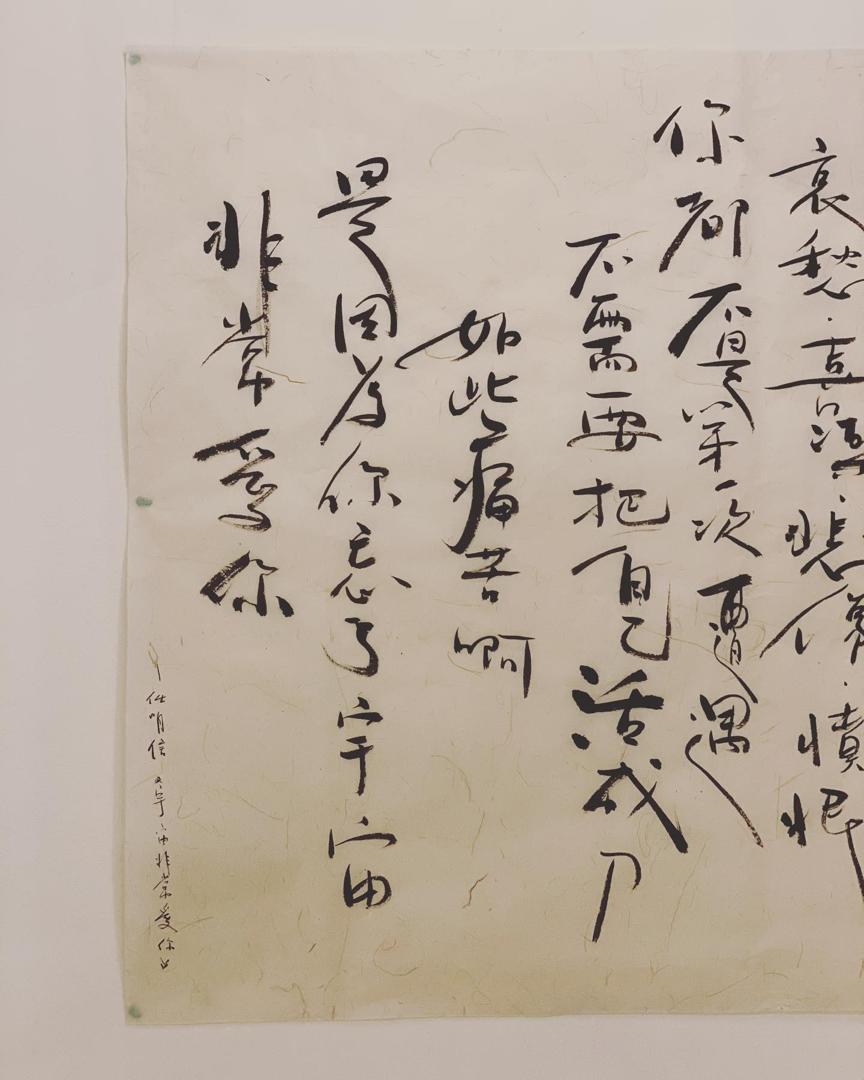 哀愁·喜·悲傷·憤恨
你都不是第一次遭遇
不需要把自己活成刀
如此痛苦啊
是因為你忘了宇宙
非常愛你
任明信《宇宙非常愛你》